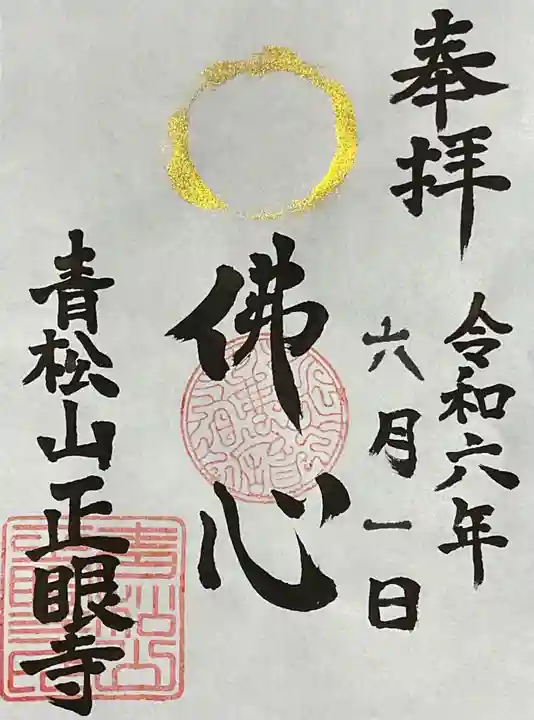 奉拝
令和六年
六月一日
佛心
青松山正眼寺